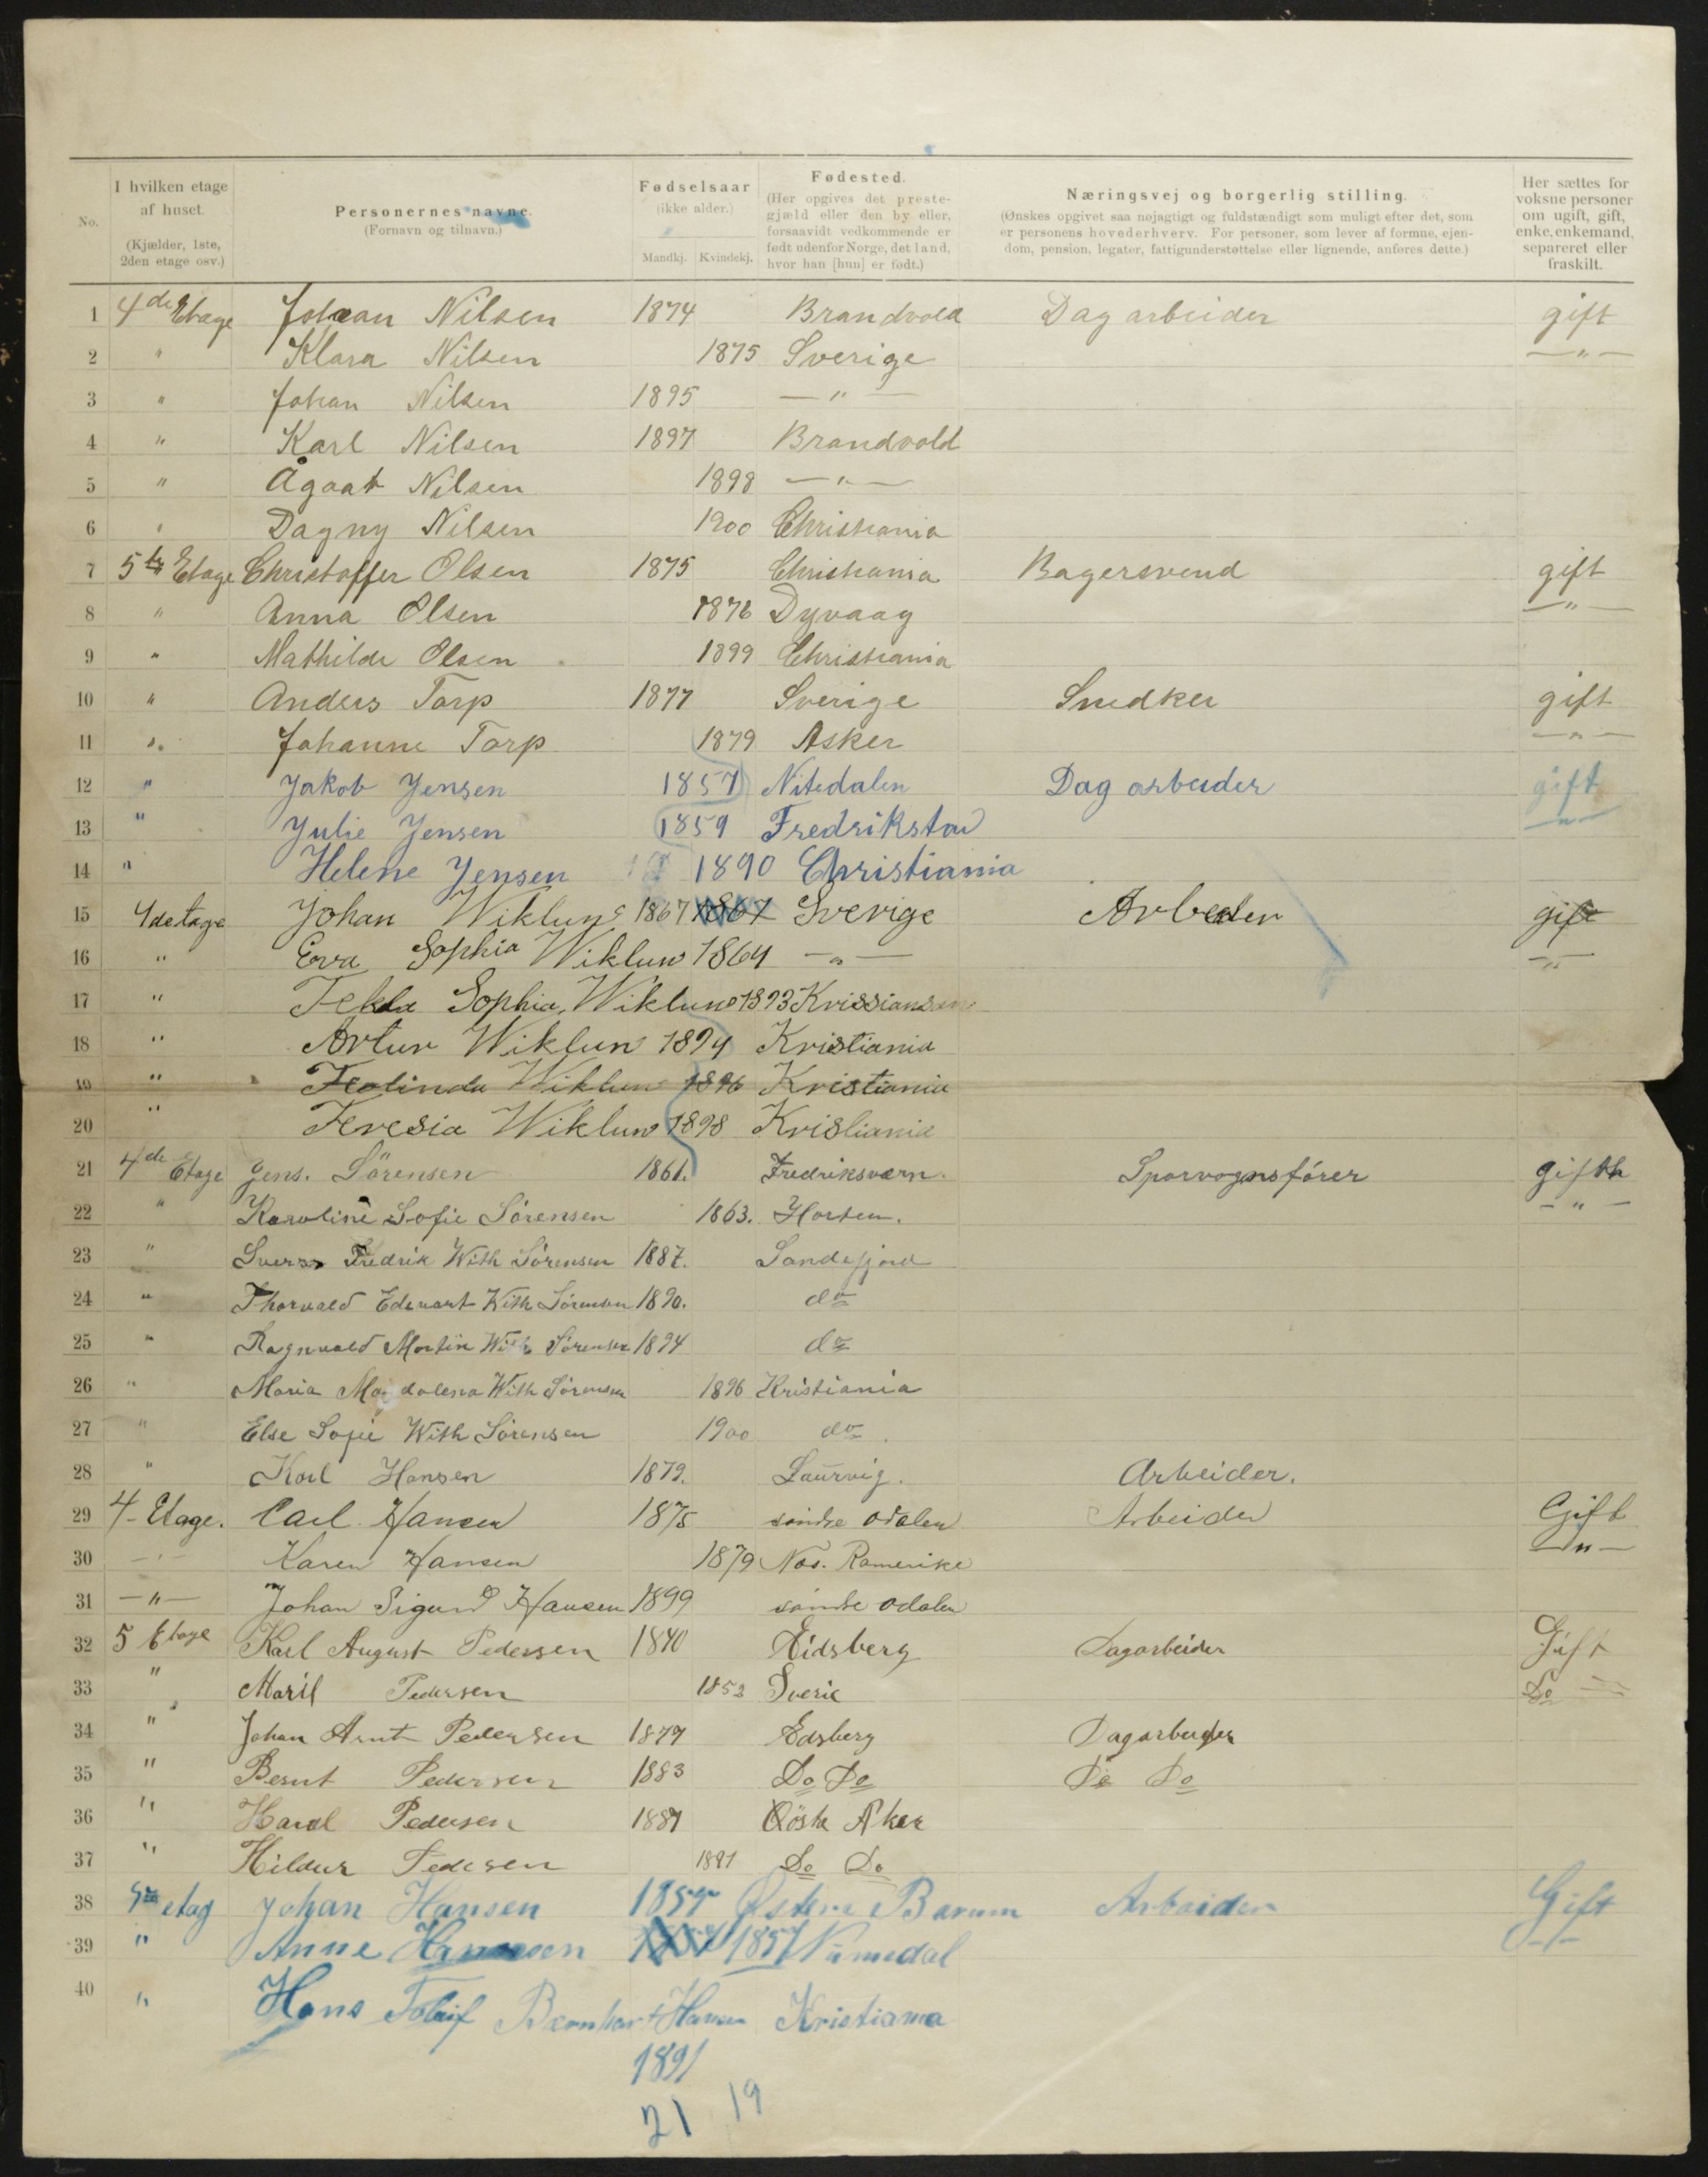 No.
I hvilken etage af huset.
(Kjælder, 1ste, 2den etage osv.)
Personernes navne.
(Fornavn og tilnavn.)
Fødselsaar
(ikke alder.)
Mandkj. Kvindekj.
Fødested.
(Her opgives det preste-
gjæld eller den by eller,
forsaavidt vedkommende er
født udenfor Norge, det land,
hvor han [hun] er født.)
Næringsvej og borgerlig stilling.
(Ønskes opgivet saa nøjagtigt og fuldstændigt som muligt efter det, som
er personens hovederhverv. For personer, som lever af formue, ejen-
dom, pension, legater, fattigunderstøttelse eller lignende, anføres dette.)
Her sættes for
voksne personer
om ugift, gift,
enke, enkemand,
separeret eller
fraskilt.
1 4de Etage Johan Nilsen 1874 Brandvold Dagarbeider gift
2 " Klara Nilsen 1875 Sverige — " —
3 " Johan Nilsen 1895 — " —
4 " Karl Nilsen 1897 Brandvold
5 " Ågaat Nilsen 1898 — " —
6 " Dagny Nilsen 1900 Christiania
7 5te Etage Christoffer Olsen 1875 Christiania Bagersvend gift
8 " Anna Olsen 1876 Dyvaag — " —
9 " Mathilde Olsen 1899 Christiania
10 " Anders Torp 1877 Sverige Snedker gift
11 " Johanne Torp 1879 Asker — " —
12 " Jakob Jensen 1857 Nitedalen Dag arbeider gift
13 " Julie Jensen 1859 Fredrikstad — " —
14 " Helene Jensen 1890 Christiania
15 4de tage Johan Wiklund 1867 1867 Sverige Arbeider gift
16 " Eva Sophia Wiklund 1864 — " — — " —
17 " Tekla Sophia Wiklund 1893
18 " Artur Wiklund 1894 Kristiania
19 " Teolinda Wiklund 1896 Kristiania
20 " Teresia Wiklund 1898 Kristiania
21 4de Etage Jens. Sörensen 1861. Fredriksværn. Sporvognsförer gift
22 " Karoline Sofie Sörensen 1863. Horten. — " —
23 " Sverre Fredrik With Sörensen 1887. Sandefjord
24 " Thorvald Edevart With Sörensen 1890. do
25 " Ragnvald Martin With Sörensen 1894 do
26 " Maria Magdalena With Sörensen 1896 Kristiania
27 " Else Sofie With Sörensen 1900 do.
28 " Karl Hansen 1879. Laurvig. Arbeider.
29 4- Etage. Carl Hansen 1875 söndre Odalen Arbeider Gift
30 — " — Karen Hansen 1879 Nes. Romerike — " —
31 — " — Johan Sigurd Hansen 1899 söndre Odalen
32 5 Etage Karl August Pedersen 1840 Eidsberg Dagarbeider Gift
33 " Pedersen 1852 Sverie Do
34 " Johan Arnt Pedersen 1879 Edsberg Dagarbeider
35 " Bernt Pedersen 1883 Do Do Do Do
36 " Haral Pedersen 1887 Östr Aker
37 " Hildur Pedersen 1891 Do Do
38 5te etag Johan Hansen Østere Barum Arbeider Gift
39 " Anne Hansen 1857 — " —
40 " Hans Bernhart Hansen Kristiania
1891
21 19